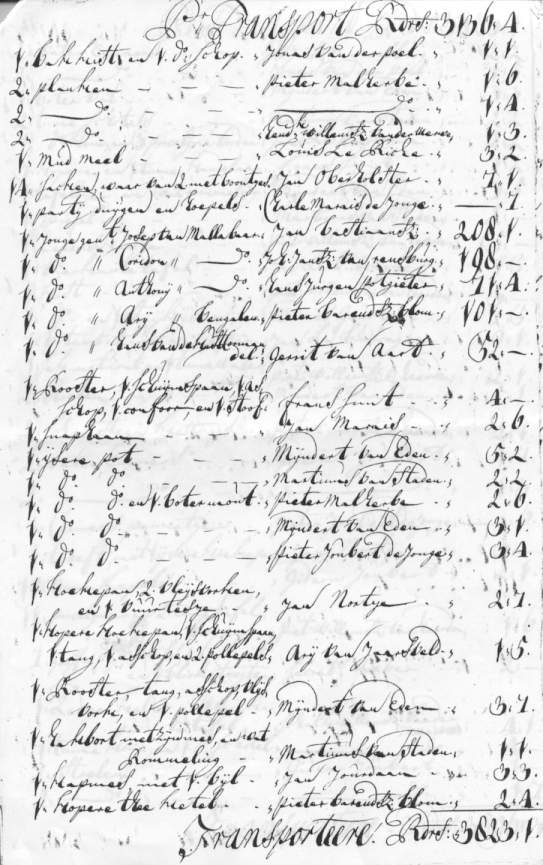 P.r Transport Rdrs: 3136„ 4.
1„ bakkeist, en 1. d.o schop „ Jonas van der poel „ 1„ 1.
2„ planken — — — „ Pieter Malherbe „ 1„ 6.
2„ — d.o — — „ — d.o „ 1„ 4.
2„ — d.o — — — „ Hend.k Willemsz van der Merwe„ 1„ 3.
1„ Mud Meel — — — „ Louis Le Riche „ 3„ 2.
14„ sacken, waar van 2 met boontjes „ Jan Oberholster „ 7„ 1.
1„ partij duijgen en hoepels „ Charle Marais de Jonge „ —„ 7.
1„ Jonge gen.t Josep van Mallabaar „ Jan Bastiaansz „ 208„ 1.
1„ d.o „ Coridon „ — d.o „ J.k Jansz van rensburg „ 198„ —
1„ d.o „ Anthonij „ — d.o „ Hans Jurgen Potgieter „ 71„ 4.
1„ d.o „ Arij „ bengalen „ Pieter barendsz blom „ 101„ —
1„ d.o „ Hans van de
del „ Gerrit van Aart „ 52„ —
1„ Rooster, 1. schuijmspaan, 1. as
schop, 1. confoor en 1. stoof „ frans smit „ 4„ —
1„ snaphaan — — — „ Jan Marais — „ 2„ 6.
1„ ijsere pot — — — „ Mijndert van Eden „ 5„ 2.
1„ d.o d.o — — — „ Martinus van Staden „ 2„ 2.
1„ d.o d.o en 1. botermout „ Pieter Malherbe „ 2„ 6.
1„ d.o d.o — — — „ Mijndert van Eden „ 3„ 1.
1„ d.o d.o — — — „ Pieter Joubert de Jonge „ 3„ 4.
1„ Koekepan, 2. vleijsvorken,
en 1. — „ Jan Nortje „ 2„ 7.
1„ kopere koekepan, 1. schuijmspaan,
1 tang, 1. asschop, en 2. pollepels „ Arij van „ 1„ 5.
1„ Rooster, tang, asschop, vleijs
vorke, en 1. pollepel „ Mijndert van Eden „ 3„ 7.
1„ hakbort met zijn mes, en wat
Rommeling — „ Martinus van Staden „ 1„ 1.
1„ kapmes met 1. bijl „ Jan Jourdaan „ 3„ 3.
1„ kopere thee ketel „ Pieter barendsz blom „ 2„ 4.
Transporteere Rdrs: 3823„ 1.